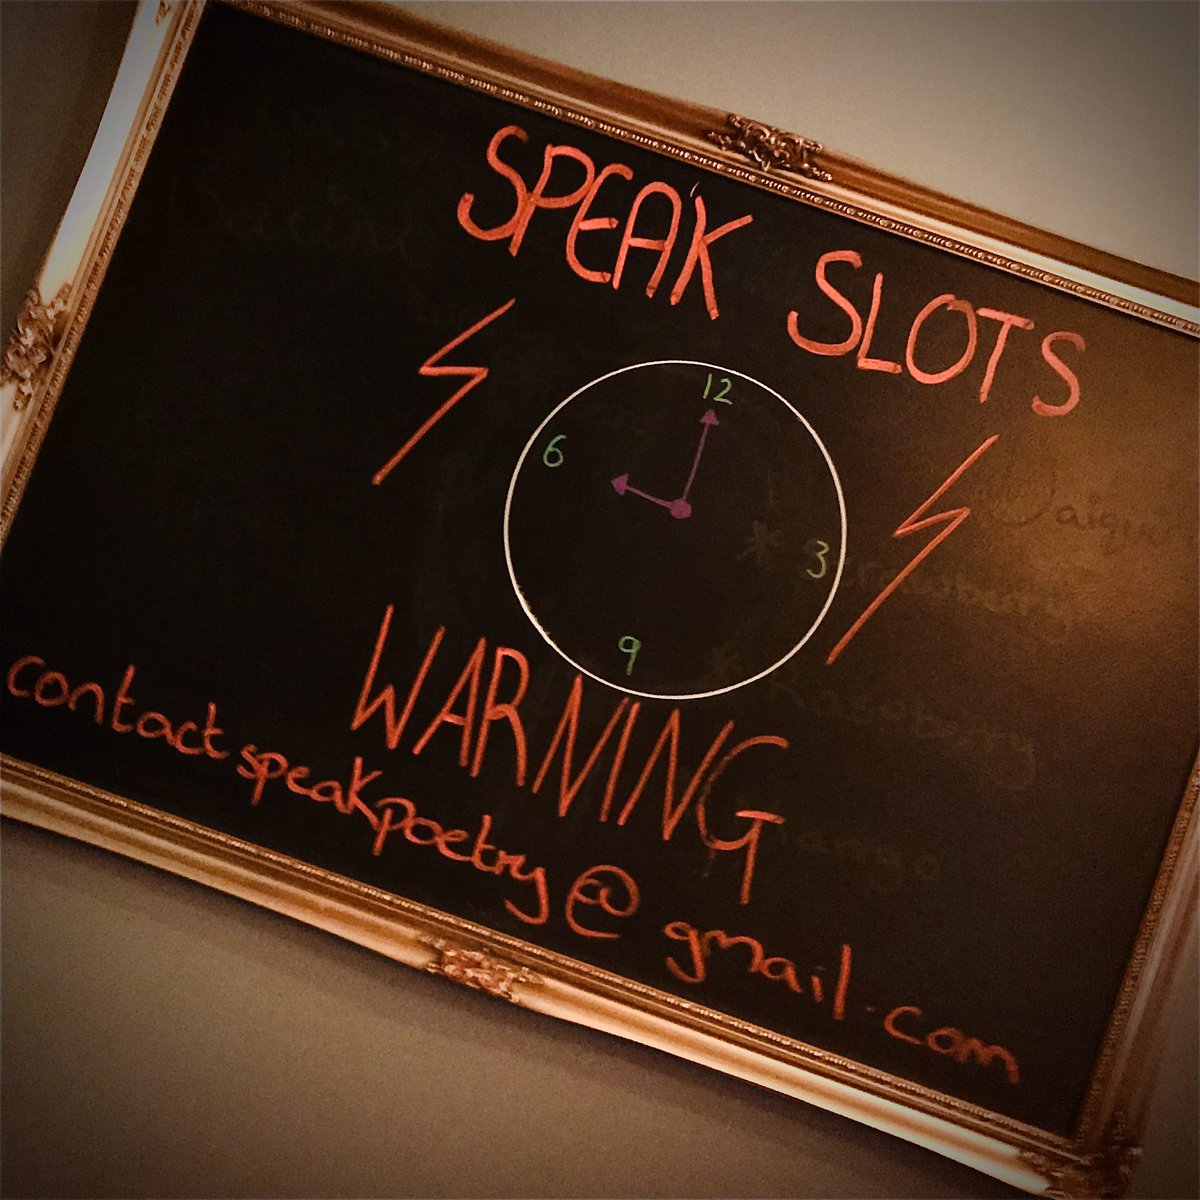 SPEAK SLOTS
12
6
3
9
WARNING
contact speakpoetry@gmail.com
Raspberry